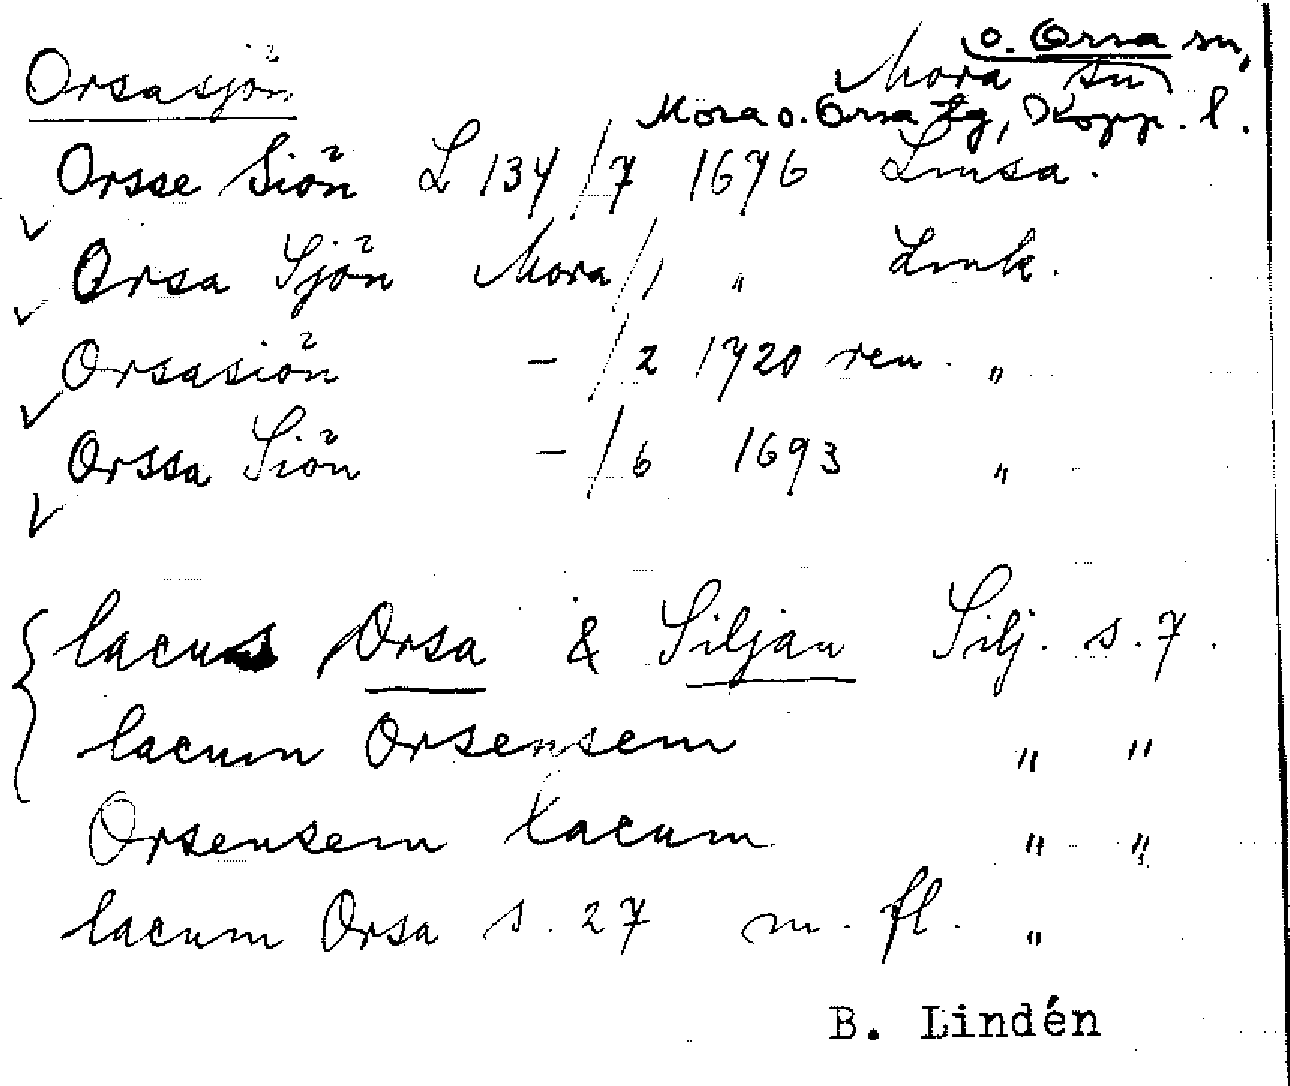 Orsasjön
Mora o. Orsa sn,
Mora o. Orsa tg, Kopp. l.
Orsse Siön L 134/7 1676 Lmsa.
Orsa Sjön Mora/1 " Lmk.
Orsasiön - /2 1720 ren. "
Orssa Siön - /6 1693 "
lacus Orsa & Siljan Silj. s. 7.
lacum Orsensem " "
Orsensem Lacum " "
lacum Orsa s. 27 m. fl. "
B. Lindén